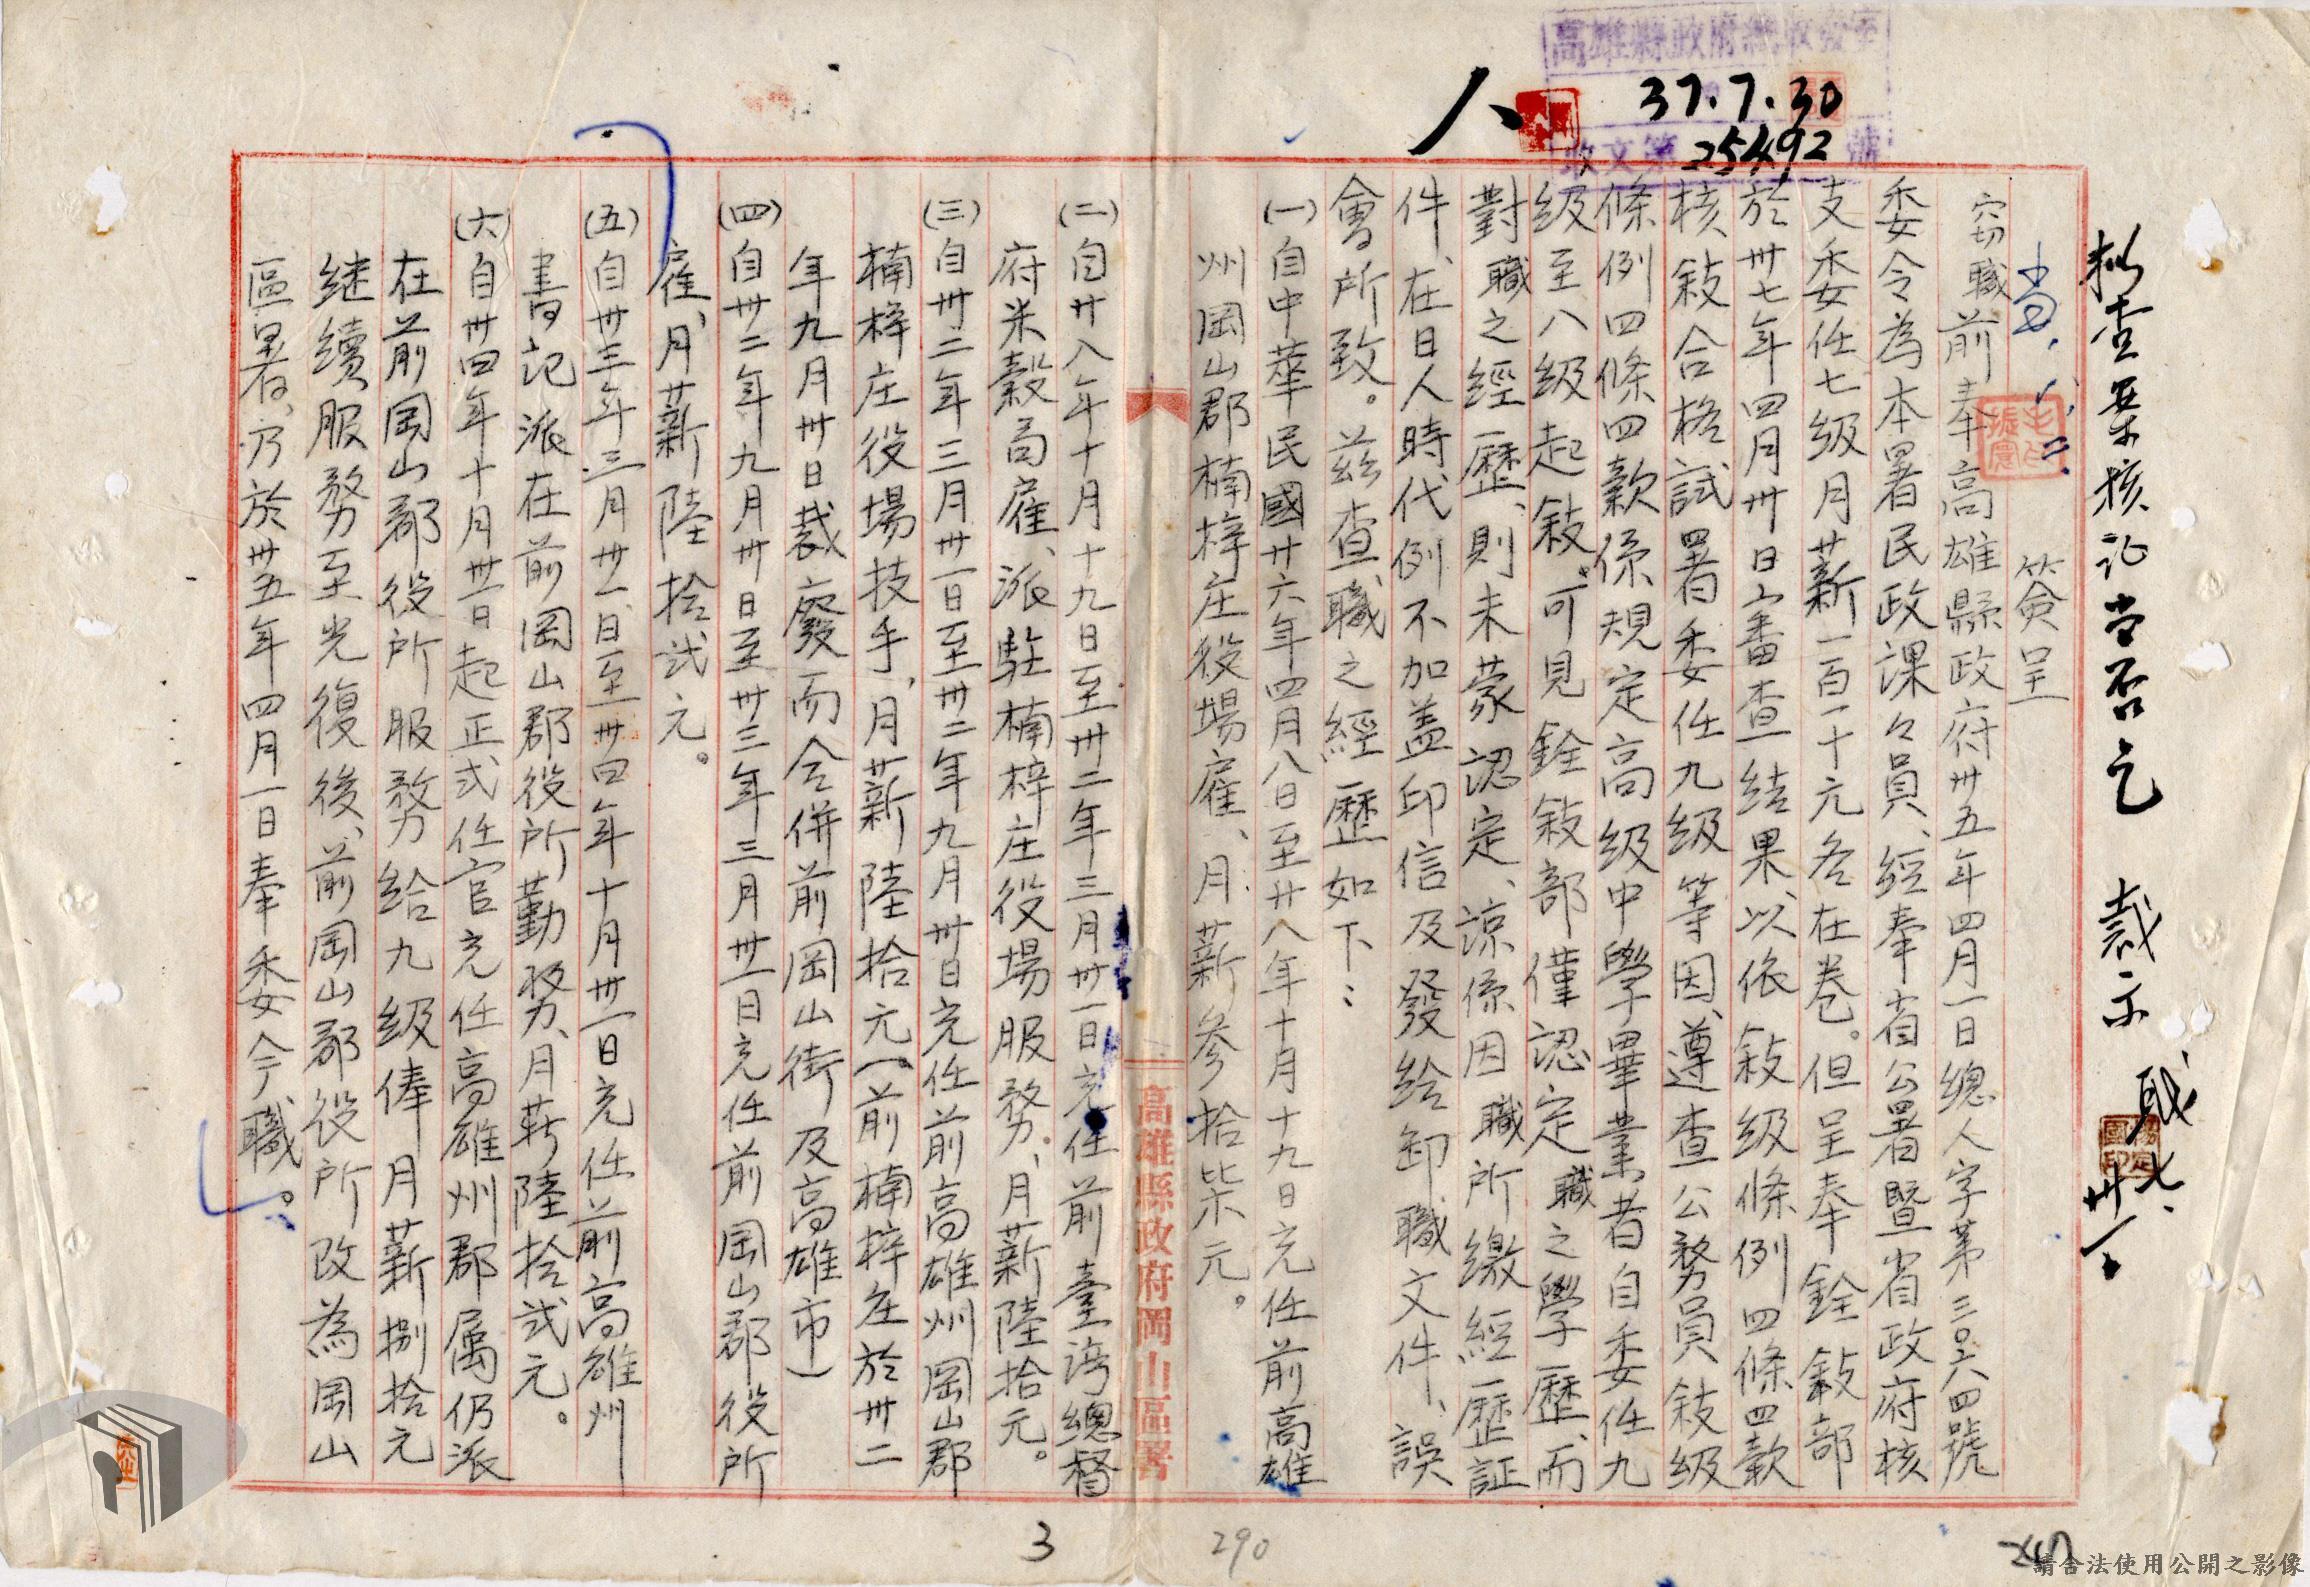 高雄縣政府總收發室
37.7.30
收文第25492號
人
擬查案核記當否乞　裁示　職
七、卅一
簽呈
窃職前奉高雄縣政府卅五年四月一日總人字第三〇六四號
委令為本署民政課々員、經奉省公署暨省政府核
支委任七級月薪一百一十元各在卷。但呈奉銓敍部
於卅七年四月卅日審查結果、以依敍級條例四條四款
核敍合格試署委任九級等因、遵查公務員敍級
條例四條四款係規定高級中學畢業者自委任九
級至八級起敍。可見銓敍部僅認定職之學歷、而
對職之經歷、則未蒙認定、諒係因職所繳經歷証
件、在日人時代例不加盖印信及發給卸職文件、誤
會所致。茲查職之經歷如下：
(一)自中華民國廿六年四月八日至廿八年十月十九日充任前高雄
州岡山郡楠梓庄役場雇、月薪参拾柒元。
高雄縣政府岡山區署
(二)自廿八年十月十九日至卅二年三月卅一日充任前臺湾總督
府米穀局雇、派駐楠梓庄役場服務、月薪陸拾元。
(三)自卅二年三月卅一日至卅二年九月卅日充任前高雄州岡山郡
楠梓庄役場技手、月薪陸拾元(前楠梓庄於卅二
年九月卅日裁廢而合併前岡山街及高雄市)
(四)自卅二年九月卅日至卅三年三月卅一日充任前岡山郡役所
雇、月薪陸拾弍元。
(五)自卅三年三月卅一日至卅四年十月卅一日充任前高雄州
書記派在前岡山郡役所勤務、月薪陸拾弍元。
(六)自卅四年十月卅一日起正式任官充任高雄州郡属仍派
在前岡山郡役所服務給九級俸月薪捌拾元
继續服務至光復後、前岡山郡役所改為岡山
區署、乃於卅五年四月一日奉委今職。
3
290
請合法使用公開之影像